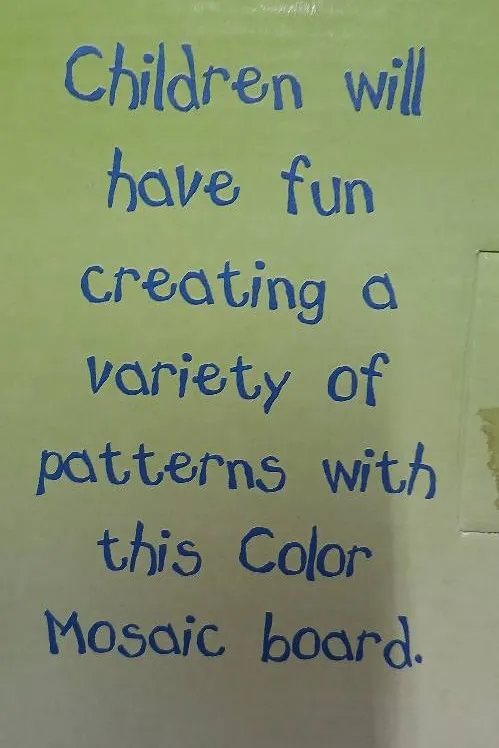 Children will
have fun
creating a
variety of
patterns with
this Color
Mosaic board.